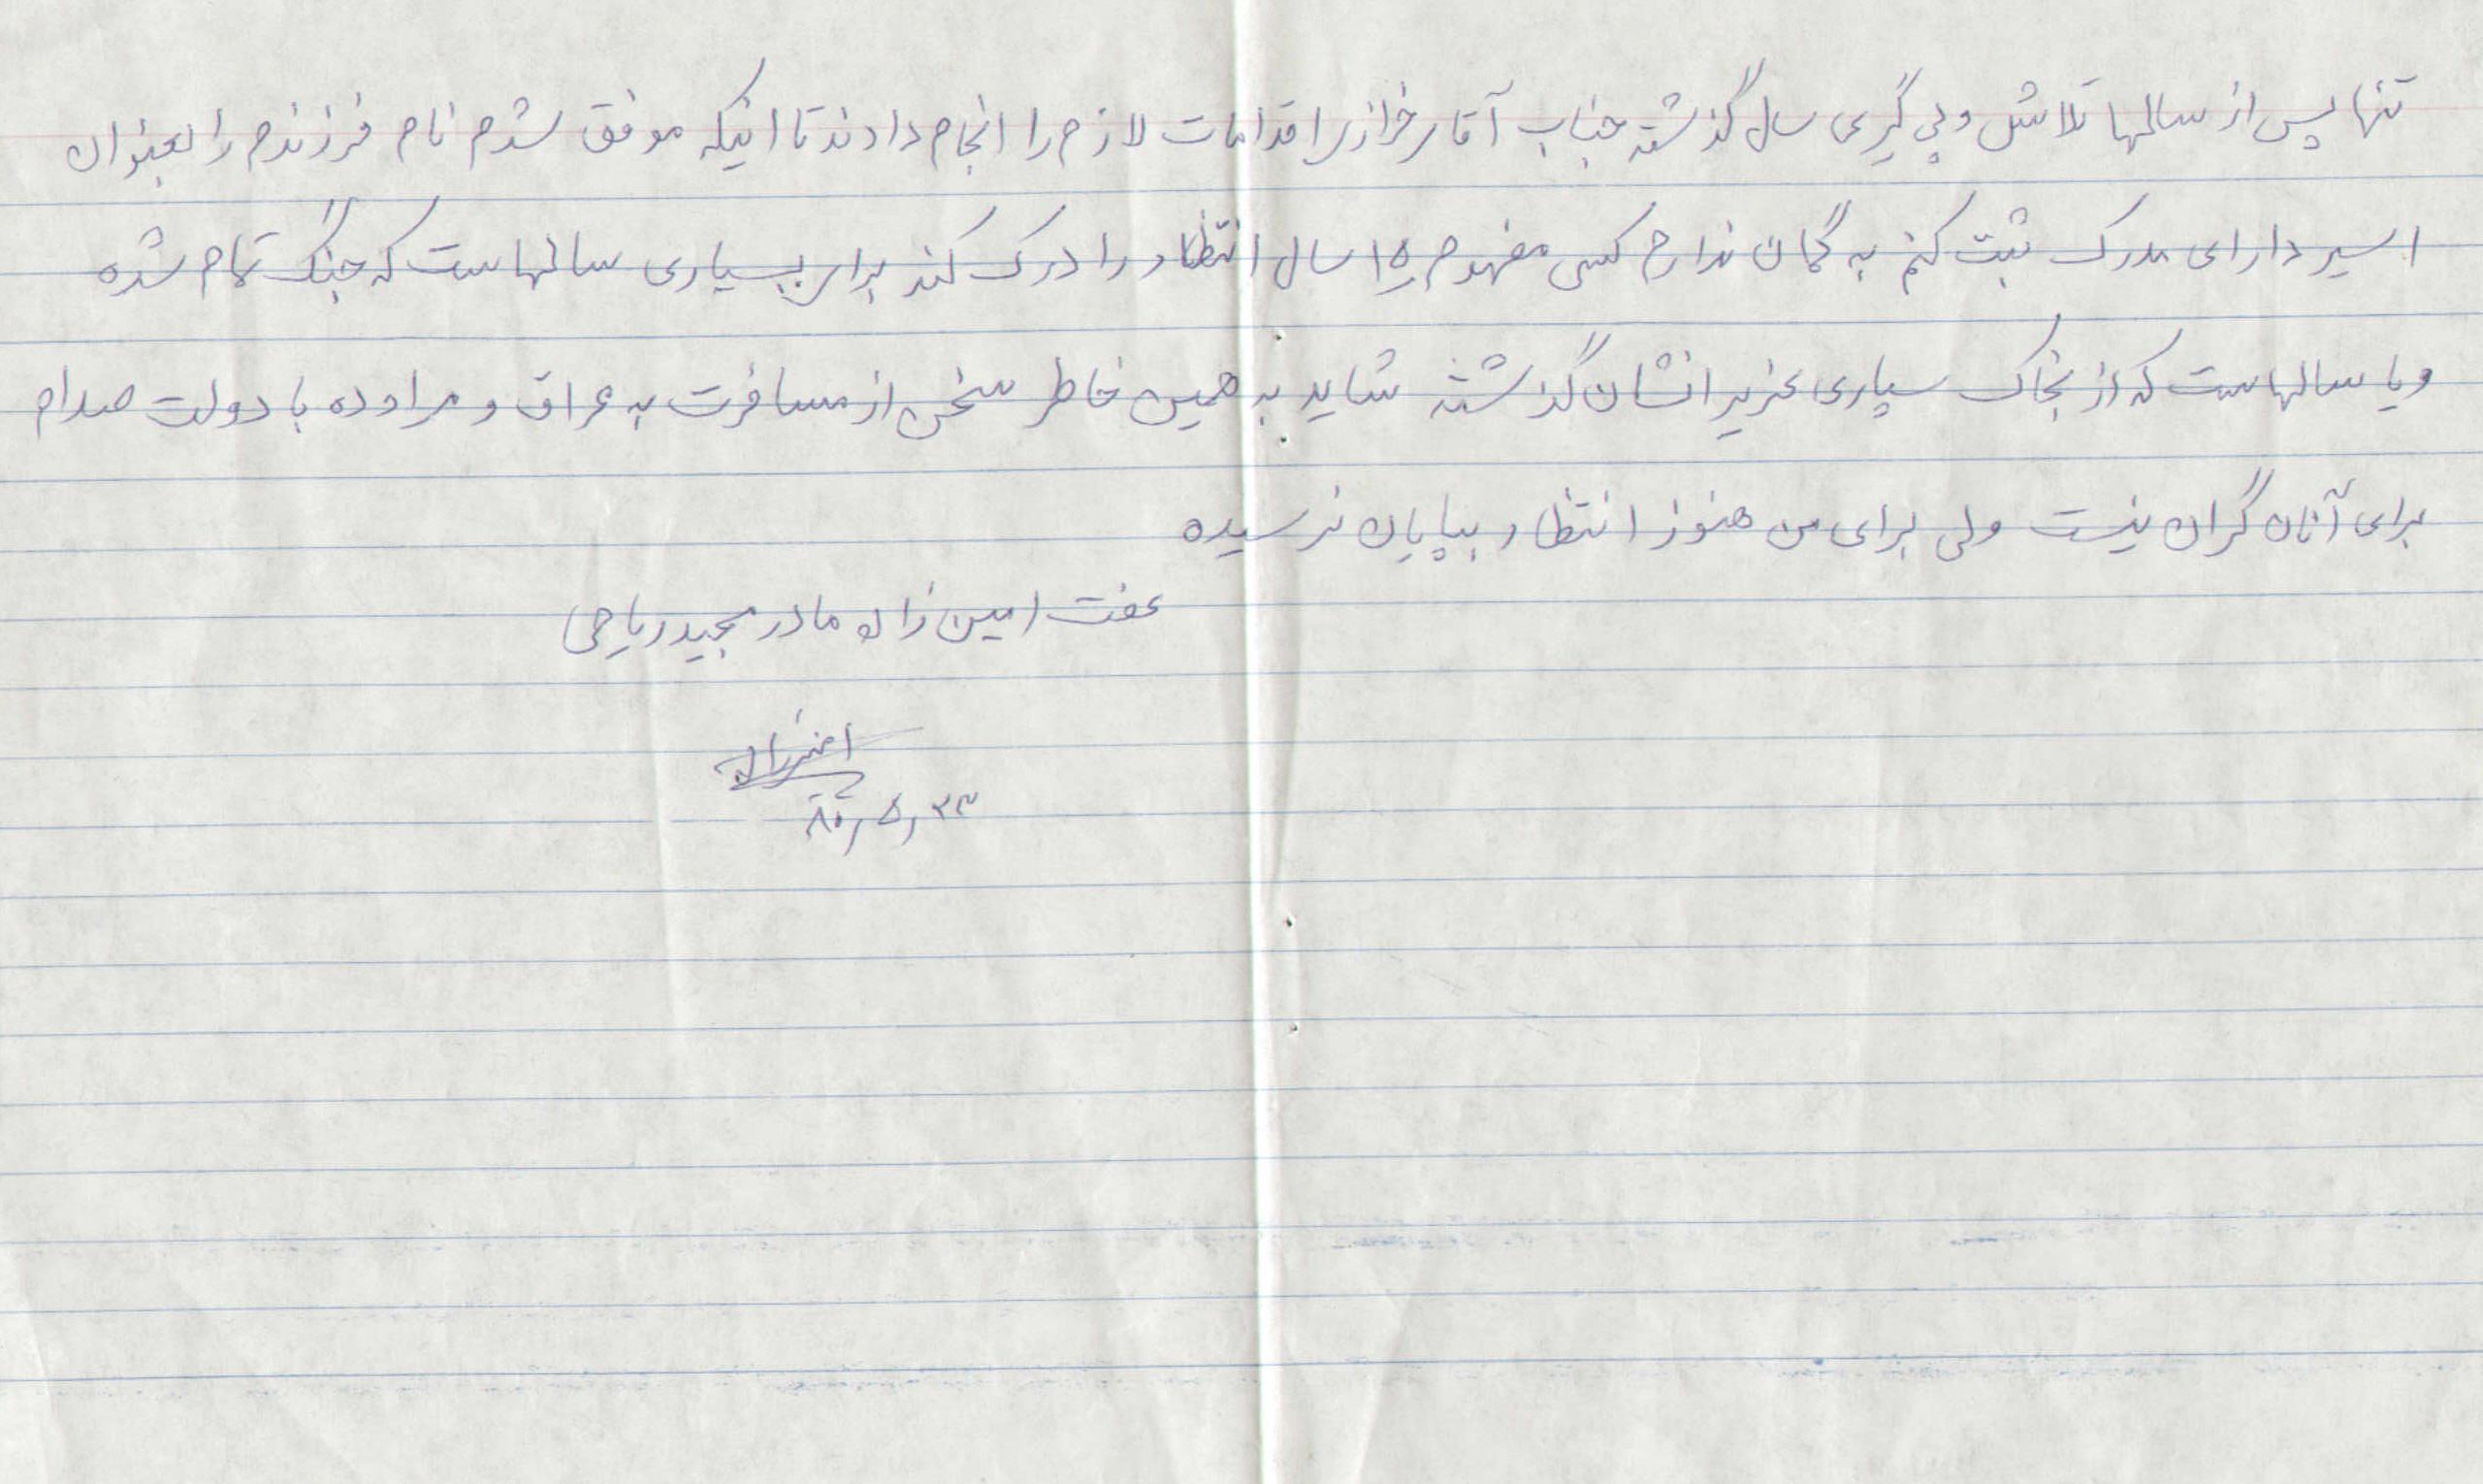 تنها پس از سالها تلاش و پی گیری سال گذشته جناب آقای خرازی اقدامات لازم را انجام دادند تا اینکه موفق شدم نام فرزندم را بعنوان
اسیر دارای مدرک ثبت کنم به گمان ندارم کسی مفهوم ۱۵ سال انتظار را درک کند برای بسیاری سالهاست که جنگ تمام شده
و یا سالهاست که از بخاک سپاری عزیرانشان گذشته شاید به همین خاطر سخن از مسافرت به عراق و مراوده با دولت صدام
برای آنان گران نیست ولی برای من هنوز انتظار بپایان نرسیده
عفت امین زاده مادر مجید ریاحی
امین‌زاده
۸۰٫۵٫۲۳